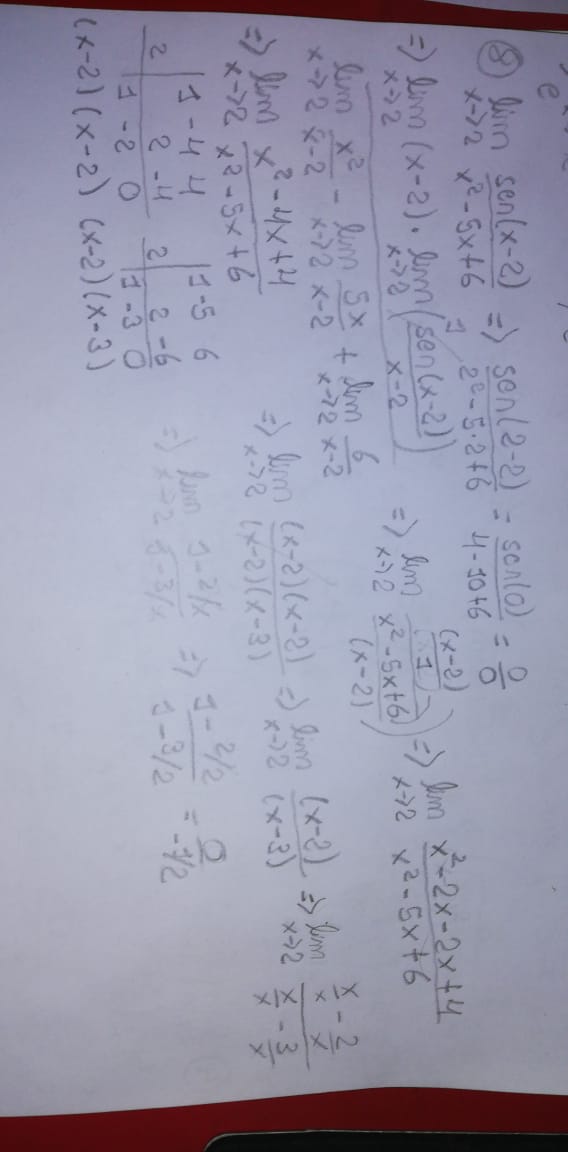 e
8) lim x→2 sen(x-2)/(x²-5x+6) => sen(2-2)/(2²-5·2+6) = sen(0)/(4-10+6) = 0/0
=> lim x→2 (x-2) · lim x→2 (sen(x-2)/(x-2)) 1 => lim x→2 (x-2)(1)/((x²-5x+6)/(x-2)) => lim x→2 (x²-2x-2x+4)/(x²-5x+6)
lim x→2 x²/(x-2) - lim x→2 5x/(x-2) + lim x→2 6/(x-2)
=> lim x→2 (x²-4x+4)/(x²-5x+6) => lim x→2 (x-2)(x-2)/((x-2)(x-3)) => lim x→2 (x-2)/(x-3) => lim x→2 (x/x - 2/x)/(x/x - 3/x)
2 | 1 -4 4   2 | 1 -5 6
2 -4   2 -6
1 -2 0   1 -3 0
=> lim x→2 (1-2/x)/(1-3/x) => (1-2/2)/(1-3/2) = 0/(-1/2)
(x-2)(x-2) (x-2)(x-3)